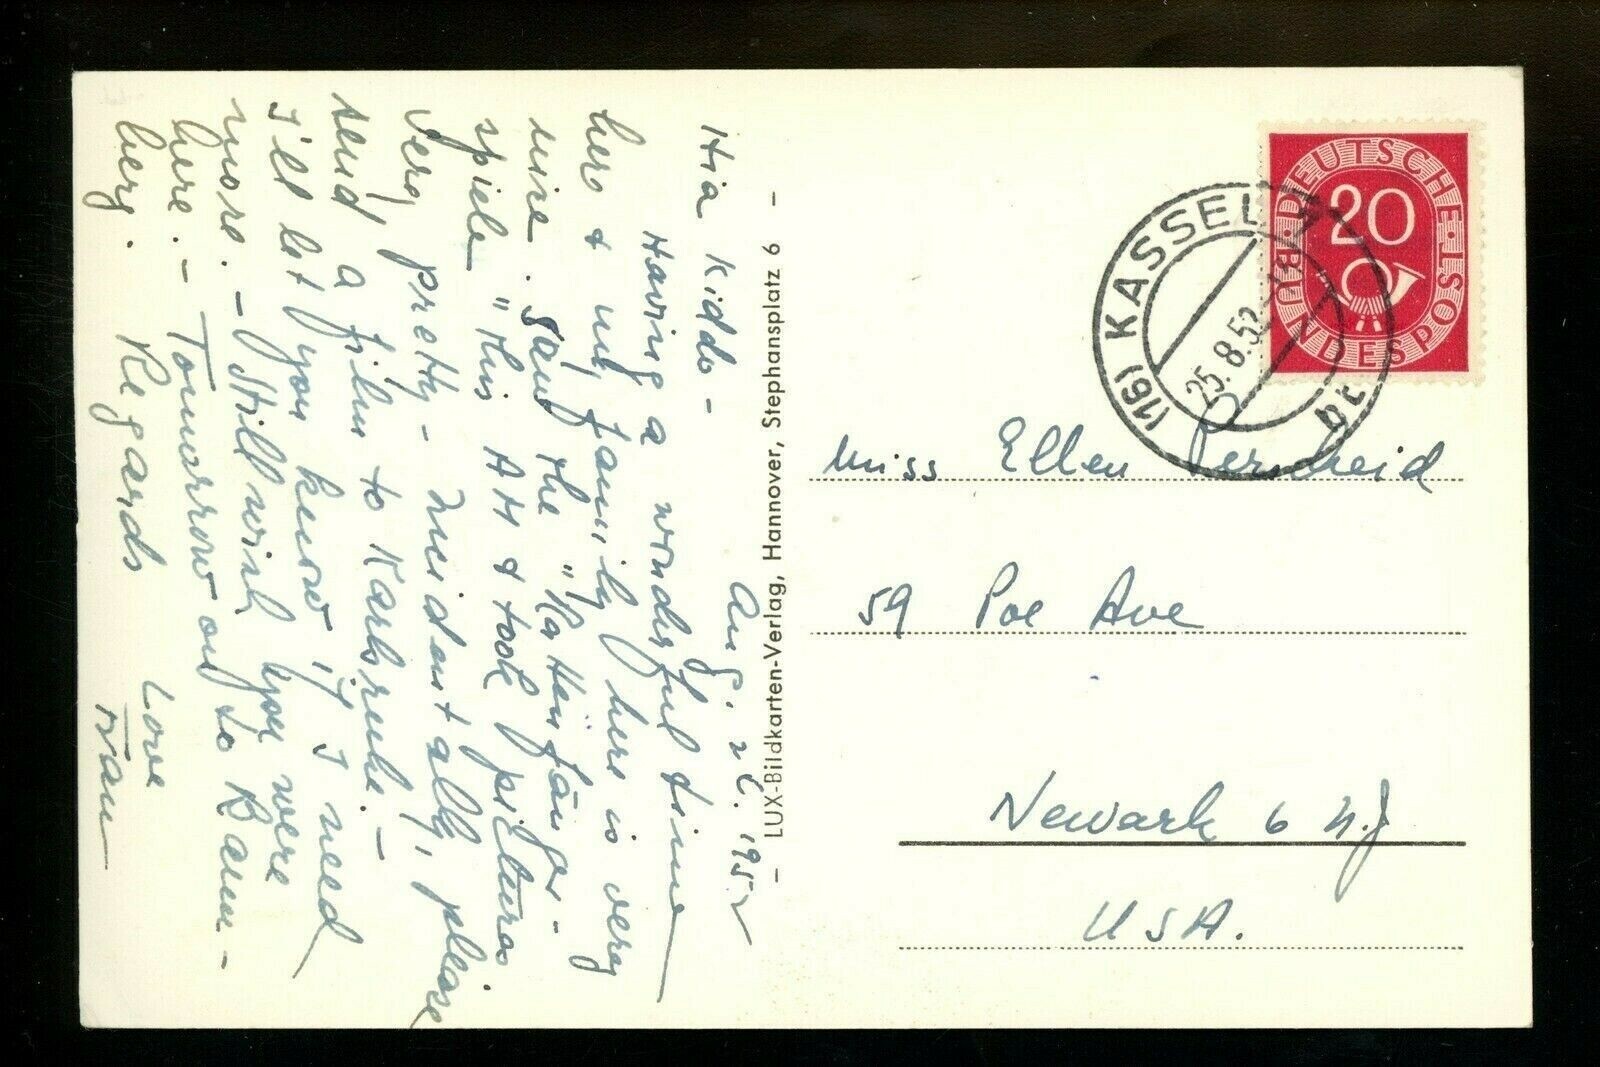 Aug. 25. 1952
Hia Kiddo -
Having a wonderful time
here & my family here is very
nice. Saw the "Rattenfänger-
spiele" this AM & took pictures
Very pretty - Incidentally, please
send a film to Karlsruhe. -
I'll let you know if I need
more. - Still wish you were
here. - Tomorrow on to Bam-
berg. Regards Love
Fran
- LUX-Bildkarten-Verlag, Hannover, Stephansplatz 6 -
DEUTSCHE BUNDESPOST
20
(16) KASSEL 7
25.8.52
bt
Miss Ellen
59 Poe Ave
Newark 6 N.J
USA.